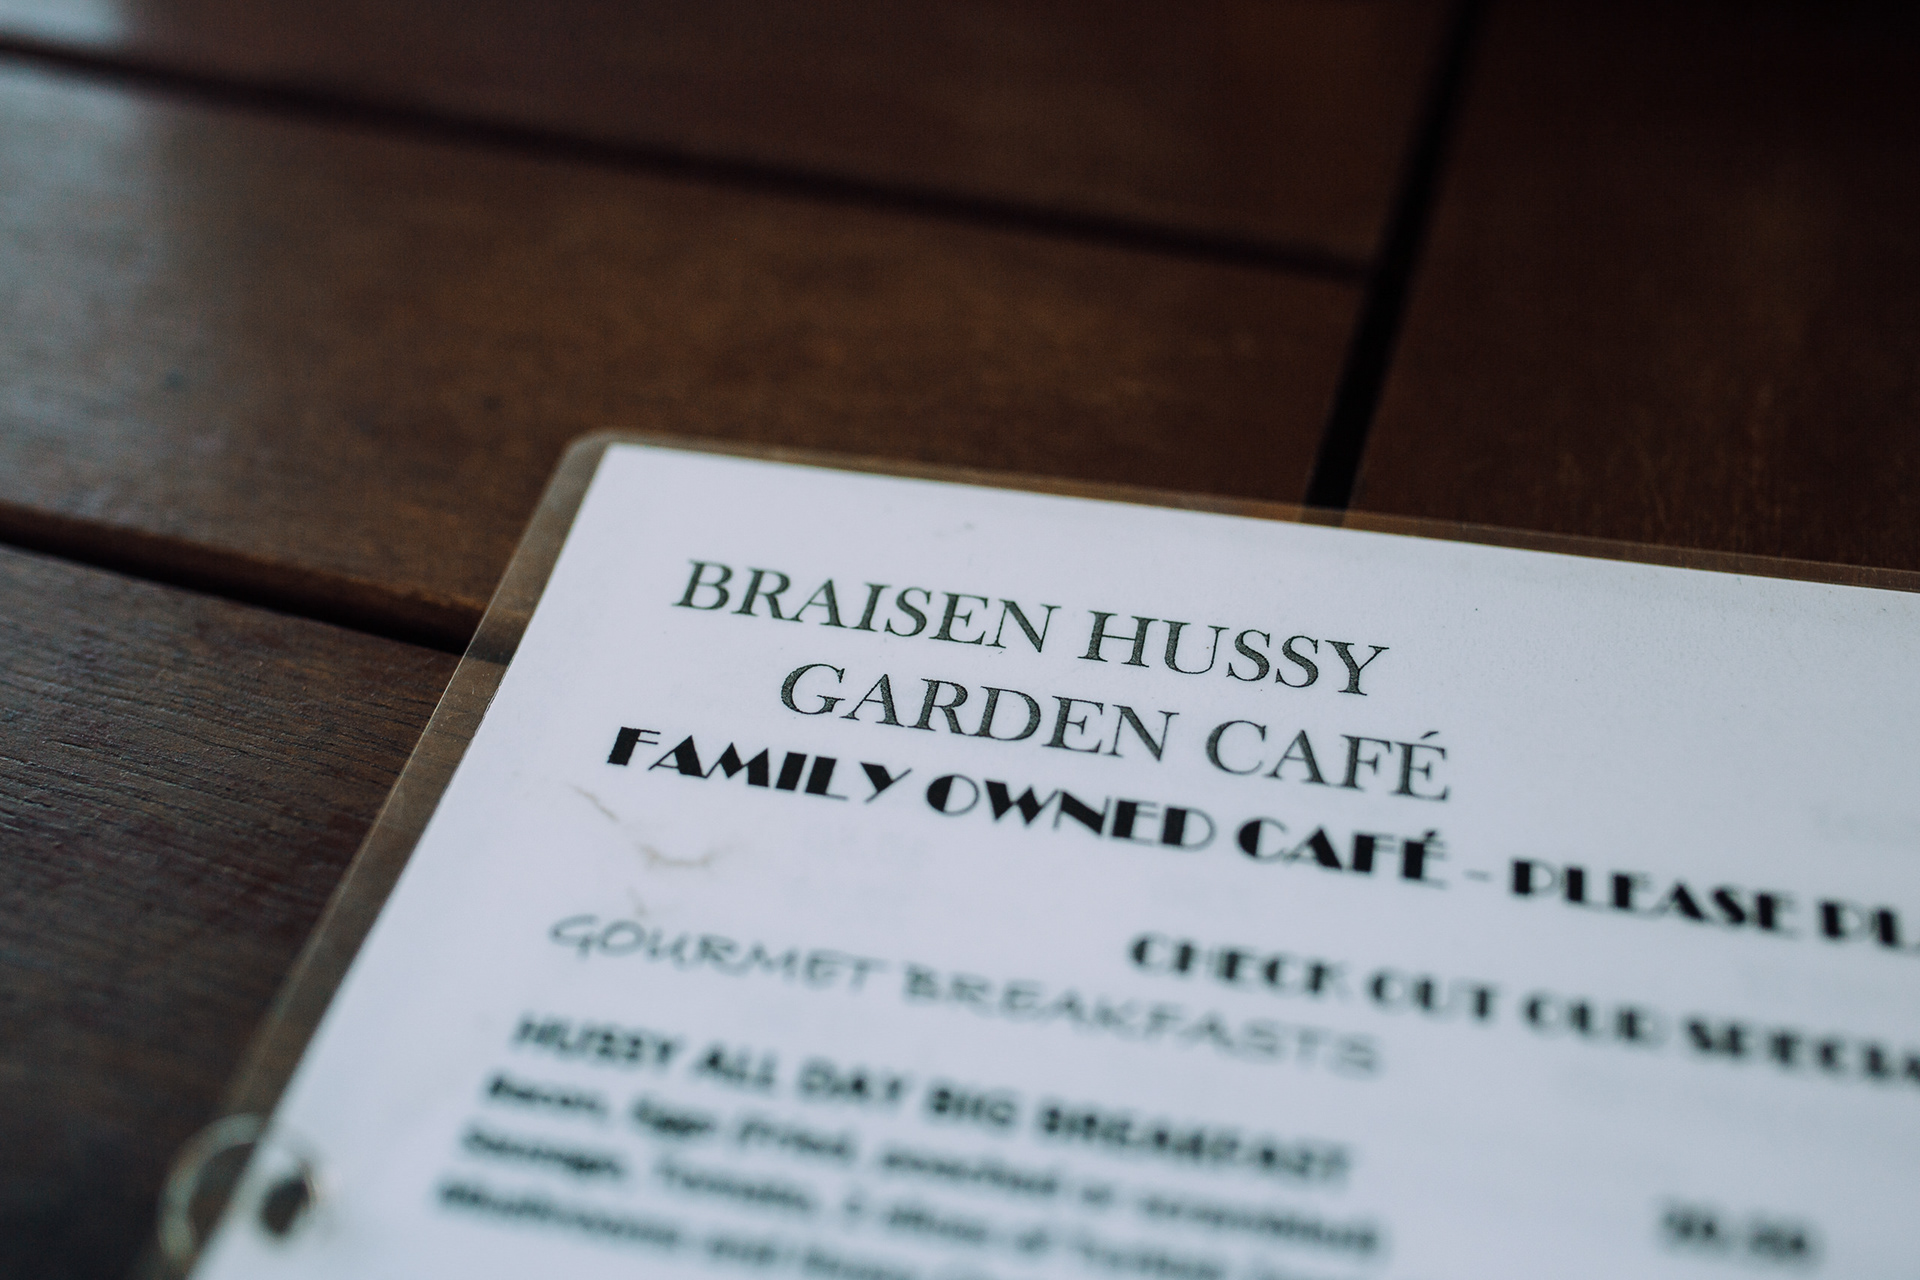 BRAISEN HUSSY
GARDEN CAFÉ
FAMILY OWNED CAFÉ - PLEASE
CHECK OUT OUR
GOURMET BREAKFASTS
HUSSY ALL DAY BIG BREAKFAST
Bacon, Eggs (Fried, poached or scrambled)
Sausage, Tomato, 2 slices of